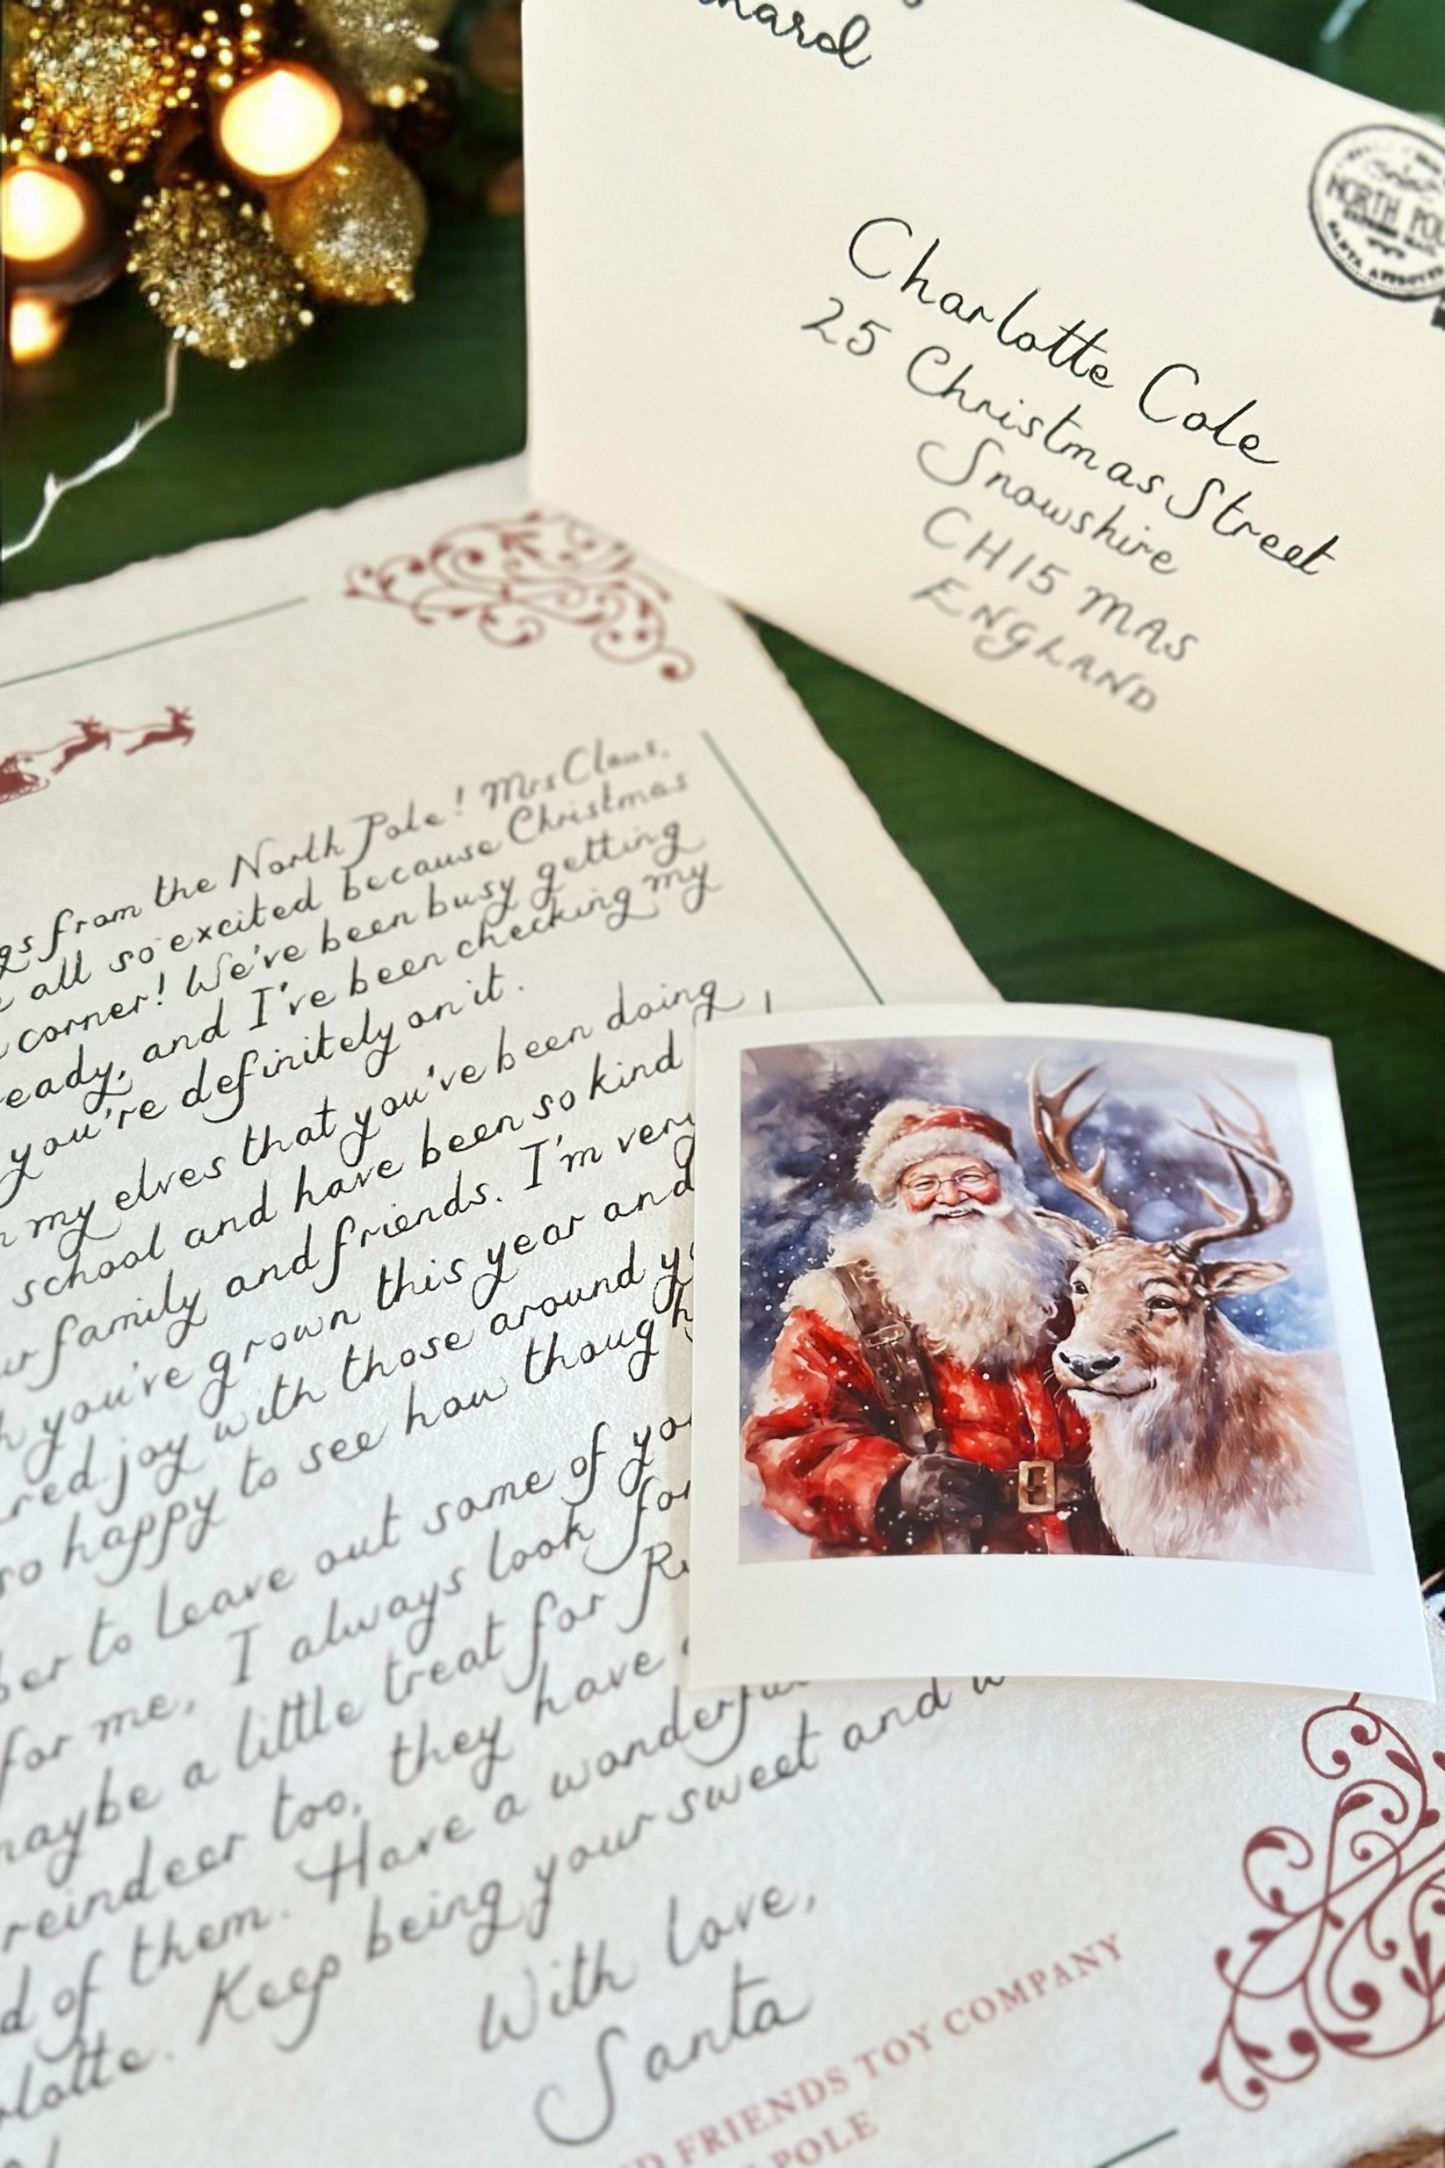 Charlotte Cole
25 Christmas Street
Snowshire
CH15 MAS
ENGLAND
NORTH
SANTA APPROVED
from the North Pole! Mrs Claus,
all so excited because Christmas
corner! We've been busy getting
ready, and I've been checking my
you're definitely on it.
my elves that you've been doing
school and have been so kind
family and friends. I'm very
you've grown this year and
joy with those around
so happy to see how
to leave out some of
for me, I always look for
maybe a little treat for
reindeer too, they have
of them. Have a wonderful
Keep being your sweet and
With love,
Santa
FRIENDS TOY COMPANY
POLE